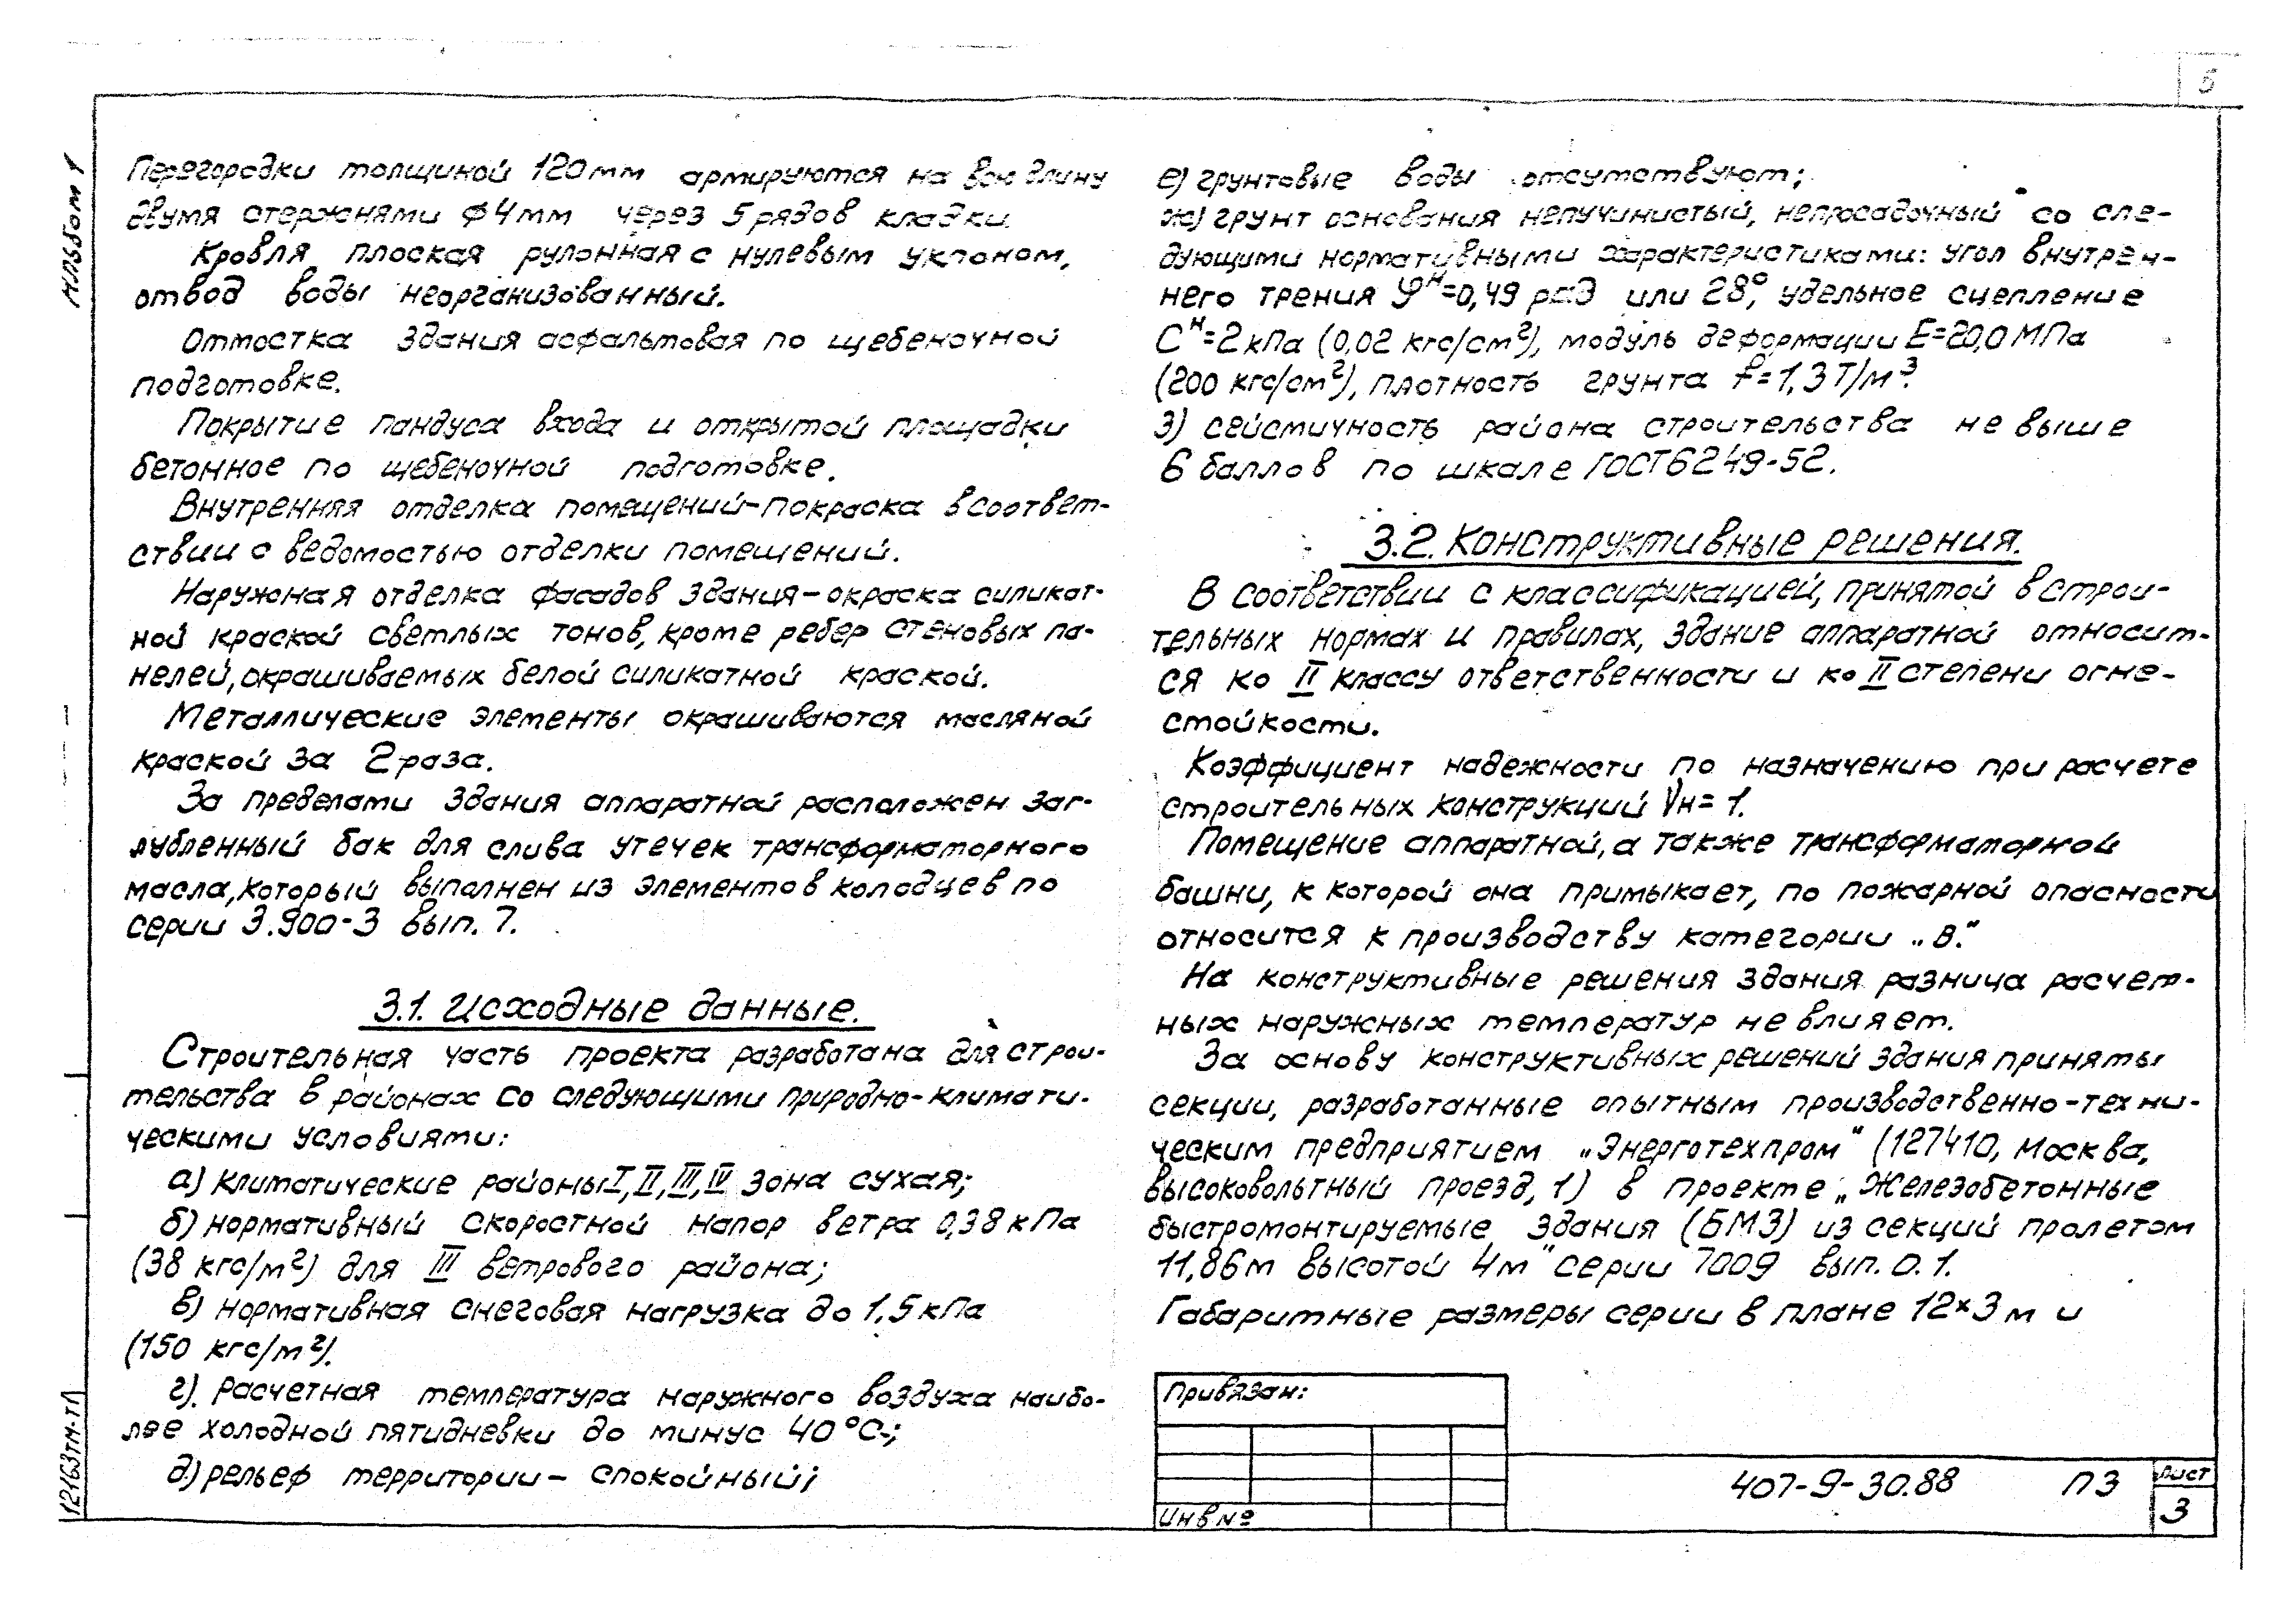 5
Альбом 1
Перегородки толщиной 120мм армируются на всю длину
двумя стержнями ф4мм через 5 рядов кладки.
Кровля плоская рулонная с нулевым уклоном,
отвод воды неорганизованный.
Отмостка здания асфальтовая по щебеночной
подготовке.
Покрытие пандуса входа и открытой площадки
бетонное по щебеночной подготовке.
Внутренняя отделка помещений-покраска в соответ-
ствии с ведомостью отделки помещений.
Наружная отделка фасадов здания-окраска силикат-
ной краской светлых тонов, кроме ребер стеновых па-
нелей, окрашиваемых белой силикатной краской.
Металлические элементы окрашиваются масляной
краской за 2 раза.
За пределами здания аппаратной расположен заг-
лубленный бак для слива утечек трансформаторного
масла, который выполнен из элементов колодцев по
серии 3.900-3 вып. 7.
3.1. Исходные данные.
Строительная часть проекта разработана для строи-
тельства в районах со следующими природно-климати-
ческими условиями:
а) климатические районы I, II, III, IV зона сухая;
б) нормативный скоростной напор ветра 0,38 кПа
(38 кгс/м²) для III ветрового района;
в) нормативная снеговая нагрузка до 1,5 кПа
(150 кгс/м²).
г). расчетная температура наружного воздуха наибо-
лее холодной пятидневки до минус 40°С;
д.) рельеф территории - спокойный;
е) грунтовые воды отсутствуют;
ж) грунт основания непучинистый, непросадочный со сле-
дующими нормативными характеристиками: угол внутрен-
него трения φᴴ=0,49 рад или 28°, удельное сцепление
Сᴴ=2 кПа (0,02 кгс/см²), модуль деформации Е=20,0 МПа
(200 кгс/см²), плотность грунта ρ=1,3 Т/м³.
з) сейсмичность района строительства не выше
6 баллов по шкале ГОСТ 6249-52.
3.2. Конструктивные решения.
В соответствии с классификацией, принятой в строи-
тельных нормах и правилах, здание аппаратной относит-
ся ко II классу ответственности и ко II степени огне-
стойкости.
Коэффициент надежности по назначению при расчете
строительных конструкций γн=1.
Помещение аппаратной, а также трансформаторной
башни, к которой она примыкает, по пожарной опасности
относится к производству категории „В."
На конструктивные решения здания разница расчет-
ных наружных температур не влияет.
За основу конструктивных решений здания приняты
секции, разработанные опытным производственно-техни-
ческим предприятием „Энерготехпром" (127410, Москва,
высоковольтный проезд, 1) в проекте „Железобетонные
быстромонтируемые здания (БМЗ) из секций пролетом
11,86м высотой 4м" серии 7009 вып. 0.1.
Габаритные размеры серии в плане 12×3 м и
Привязан:
Инв №
407-9-30.88 ПЗ
Лист
3
12163тм-т1